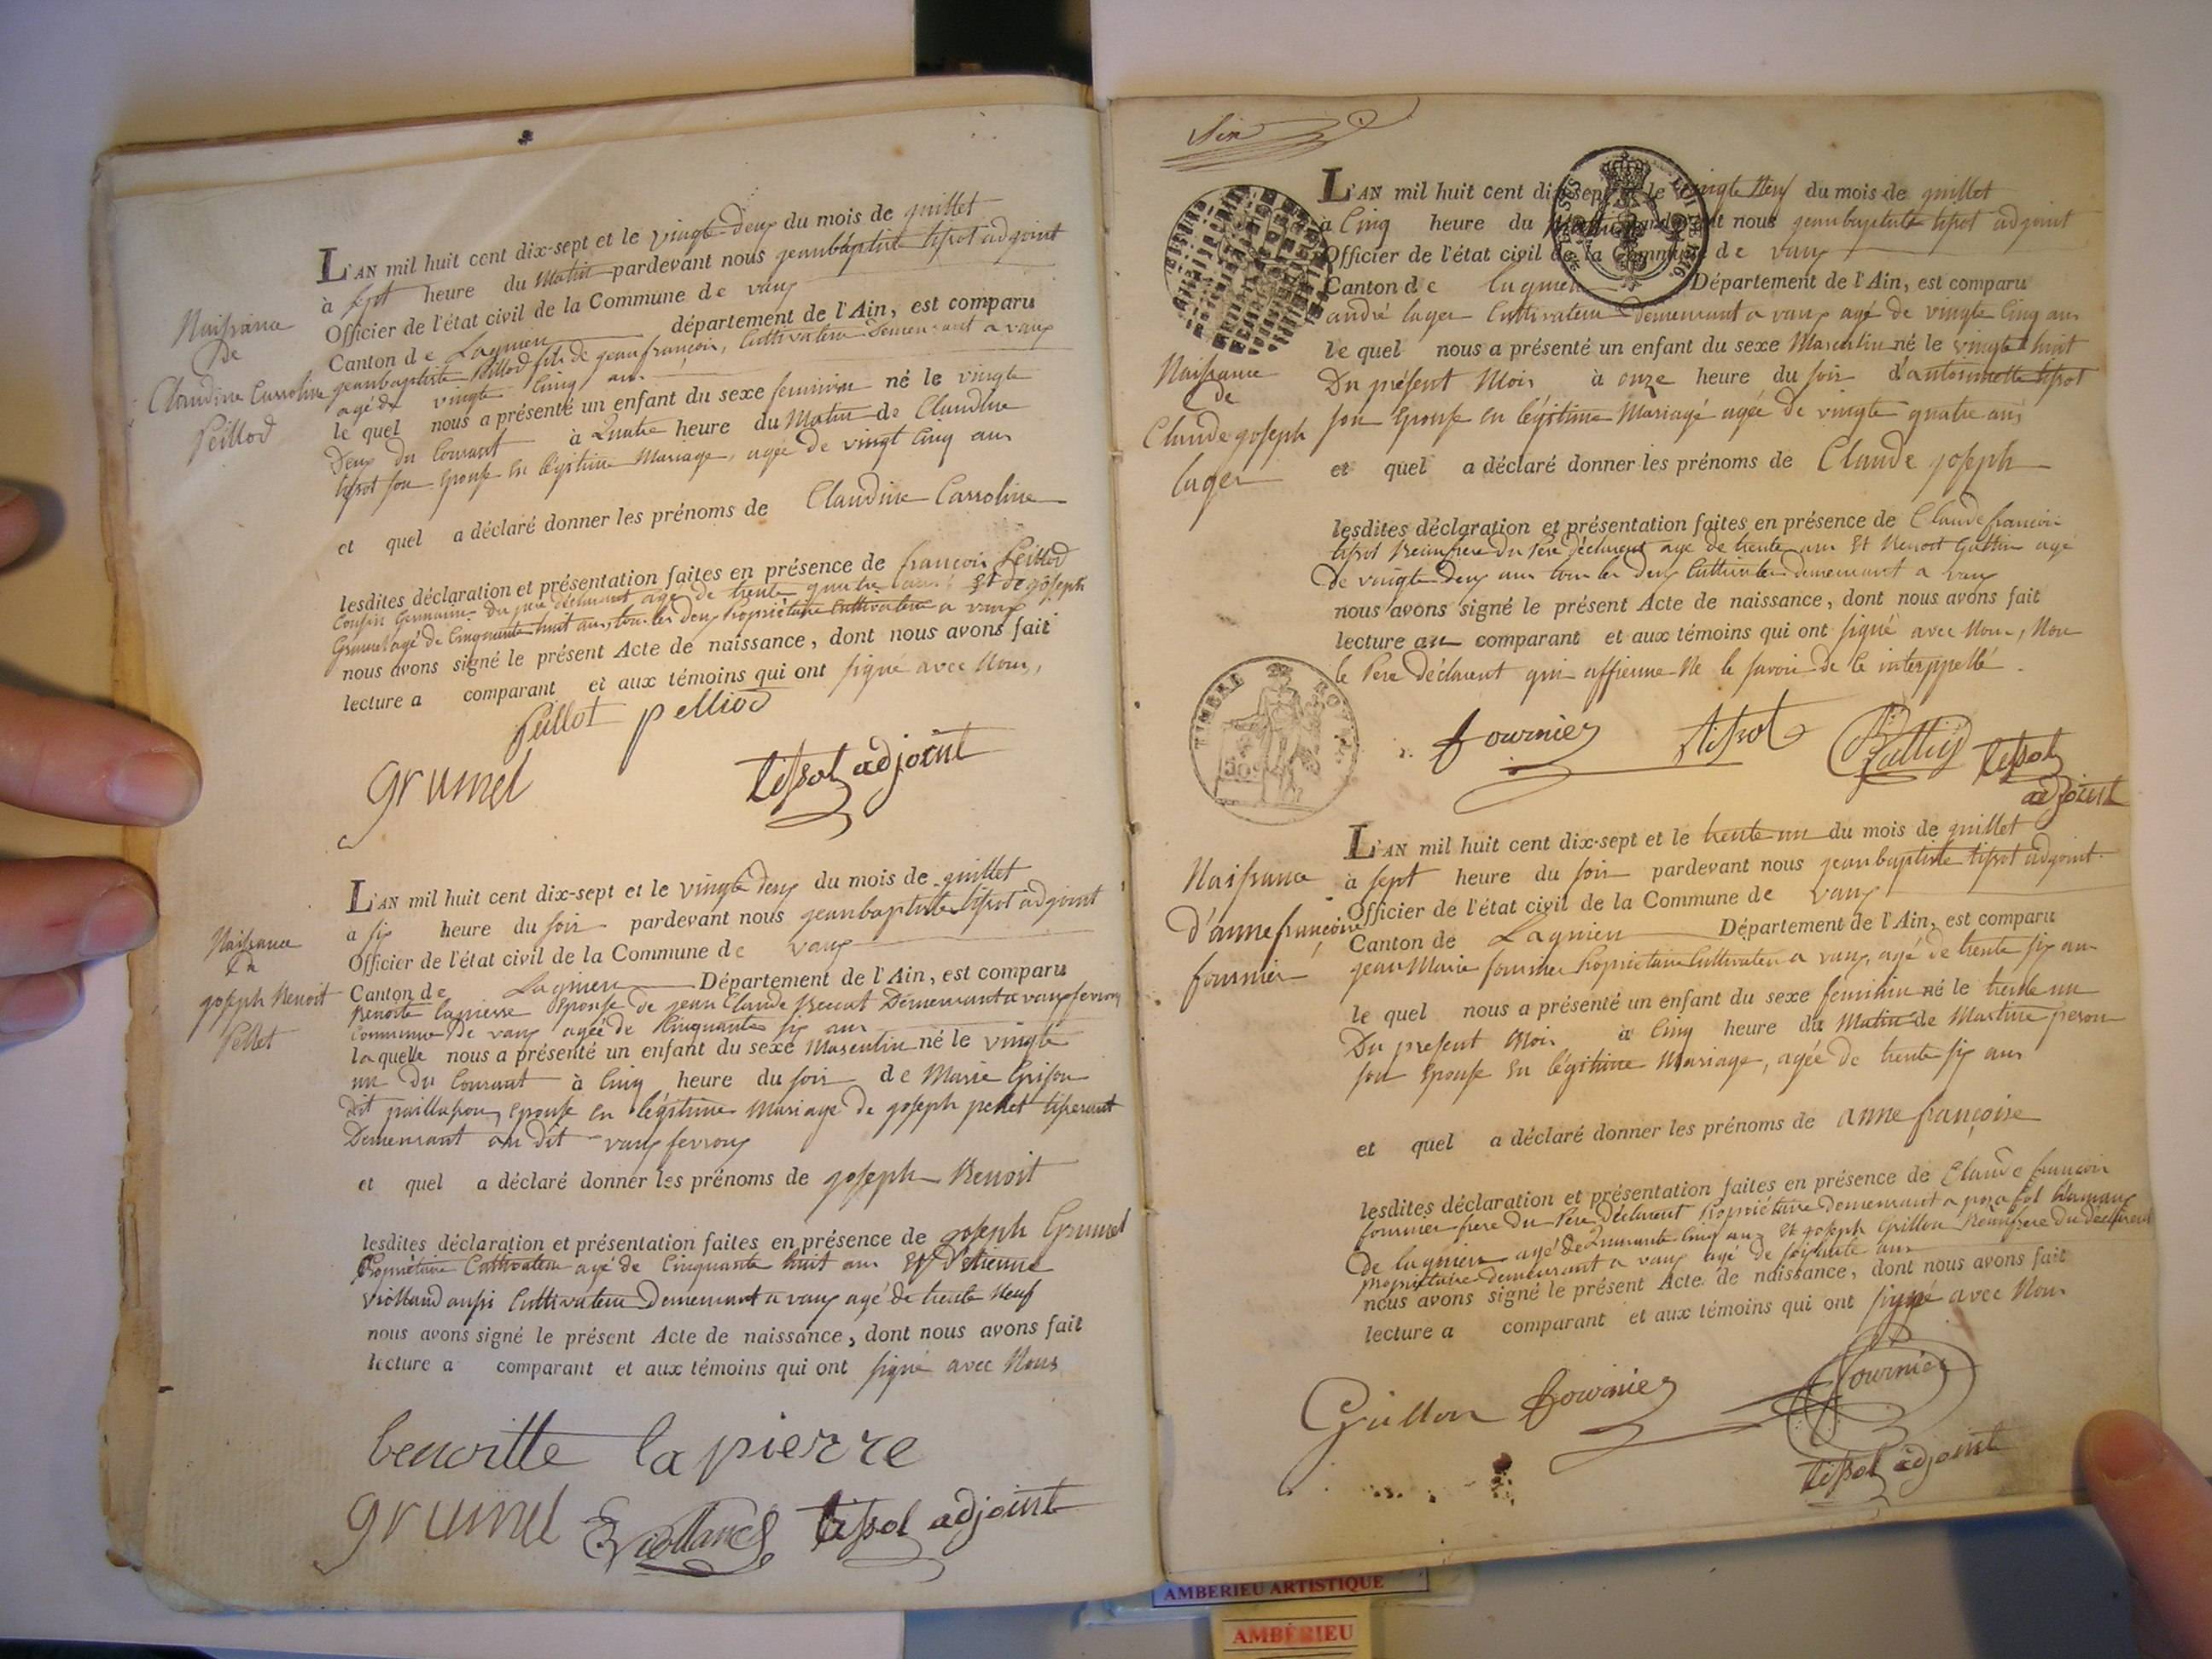 L'AN mil huit cent dix-sept et le vingt deux du mois de juillet
à sept heure du Matin pardevant nous jeanbaptiste tissot adjoint
Officier de l'état civil de la Commune de vaux
Canton de Lagnieu département de l'Ain, est comparu
jeanbaptiste Peillod fils de jean françois, Cultivateur Demeurant a vaux
agé de vingt Cinq ans
le quel nous a présenté un enfant du sexe feminin né le vingte
Deux du Courant à Quatre heure du Matin de Claudine
tissot son Epouse En légitime Mariage, agée de vingt Cinq ans
et quel a déclaré donner les prénoms de Claudine Carroline
lesdites déclaration et présentation faites en présence de françois Peillod
Cousin Germain Du pere déclarant agé de trente quatre ans Et de joseph
Grumel agé de Cinquante huit ans, tou les deux Propriétaire Cultivateur a vaux
nous avons signé le présent Acte de naissance, dont nous avons fait
lecture a comparant et aux témoins qui ont signé avec Nous,
Peillot pelliod
grumel tissot adjoint
Naissance
de
Claudine Carroline
Peillod
L'AN mil huit cent dix-sept et le vingte deux du mois de juillet
à six heure du soir pardevant nous jeanbaptiste tissot adjoint
Officier de l'état civil de la Commune de vaux
Canton de Lagnieu Département de l'Ain, est comparu
Benoite lapierre Epouse de jean Claude Demeurant a vaux fevroux
Commune De vaux agée de Cinquante six ans
laquelle nous a présenté un enfant du sexe Masculin né le vingte
un du Courant à Cinq heure du soir de Marie Grison
dit epouse en légitime Mariage de joseph pellet tisserant
Demeurant au dit vaux fevroux
et quel a déclaré donner les prénoms de joseph Benoit
lesdites déclaration et présentation faites en présence de joseph Grumel
Propriétaire Cultivateur agé de Cinquante huit ans Et D'etienne
violland aussi Cultivateur Demeurant a vaux agé de trente Neuf
nous avons signé le présent Acte de naissance, dont nous avons fait
lecture a comparant et aux témoins qui ont signé avec Nous
benoitte lapierre
grumel E violland tissot adjoint
Naissance
de
joseph Benoit
Pellet
L'AN mil huit cent dix-sept et le vingte Neuf du mois de juillet
à Cinq heure du Matin pardevant nous jeanbaptiste tissot adjoint
Officier de l'état civil de la Commune de vaux
Canton de lagnieu Département de l'Ain, est comparu
andré lager Cultivateur Demeurant a vaux agé de vingte Cinq ans
le quel nous a présenté un enfant du sexe Masculin né le vingte huit
Du présent Mois à onze heure du soir d'antoinette tissot
son Epouse en légitime Mariagé agée de vingte quatre ans
et quel a déclaré donner les prénoms de Claude joseph
lesdites déclaration et présentation faites en présence de Claude françois
tissot Beaufrere Du Pere déclarent agé de trente ans Et Benoit Gattin agé
De vingte deux ans tou les deux Cultivateur demeurant a vaux
nous avons signé le présent Acte de naissance, dont nous avons fait
lecture au comparant et aux témoins qui ont signé avec Nous, Non
le Pere déclarent qui affirme Ne le savoir de ce interppellé
fournier tissot tissot
adjoint
Naissance
de
Claude joseph
lager
TIMBRE ROYAL
50
L'AN mil huit cent dix-sept et le trente un du mois de juillet
à sept heure du soir pardevant nous jeanbaptiste tissot adjoint
Officier de l'état civil de la Commune de vaux
Canton de Lagnieu Département de l'Ain, est comparu
jean Marie fournier Propriétaire Cultivateur a vaux, agé de trente six ans
le quel nous a présenté un enfant du sexe feminin né le trente un
Du present Mois à Cinq heure du Matin de Martine peron
son Epouse En légitime Mariage, agée de trente six ans
et quel a déclaré donner les prénoms de anne françoise
lesdites déclaration et présentation faites en présence de Claude françois
fournier frere du Pere Déclarent Propriétaire demeurant a posafol
De lagnieu agé de Quarante Cinq ans Et joseph Grillon Beaufrere du déclarent
propriétaire demeurant a vaux agé de soixante ans
nous avons signé le présent Acte de naissance, dont nous avons fait
lecture a comparant et aux témoins qui ont signé avec Nous
Grillon fournier fournier
tissot adjoint
Naissance
d'anne françoise
fournier
AMBERIEU ARTISTIQUE
AMBÉRIEU